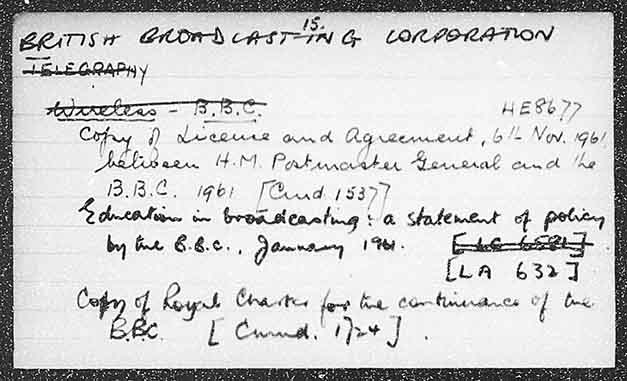 15.
BRITISH BROADCASTING CORPORATION
TELEGRAPHY
Wireless - B.B.C. HE8677
Copy of Licence and Agreement, 6th Nov. 1961
between H.M. Postmaster General and the
B.B.C. 1961 [Cmd. 1537]
Education in broadcasting: a statement of policy
by the B.B.C., January 1961. [LG 6581]
[LA 632]
Copy of Royal Charter for the continuance of the
B.B.C. [Cmnd. 1724].